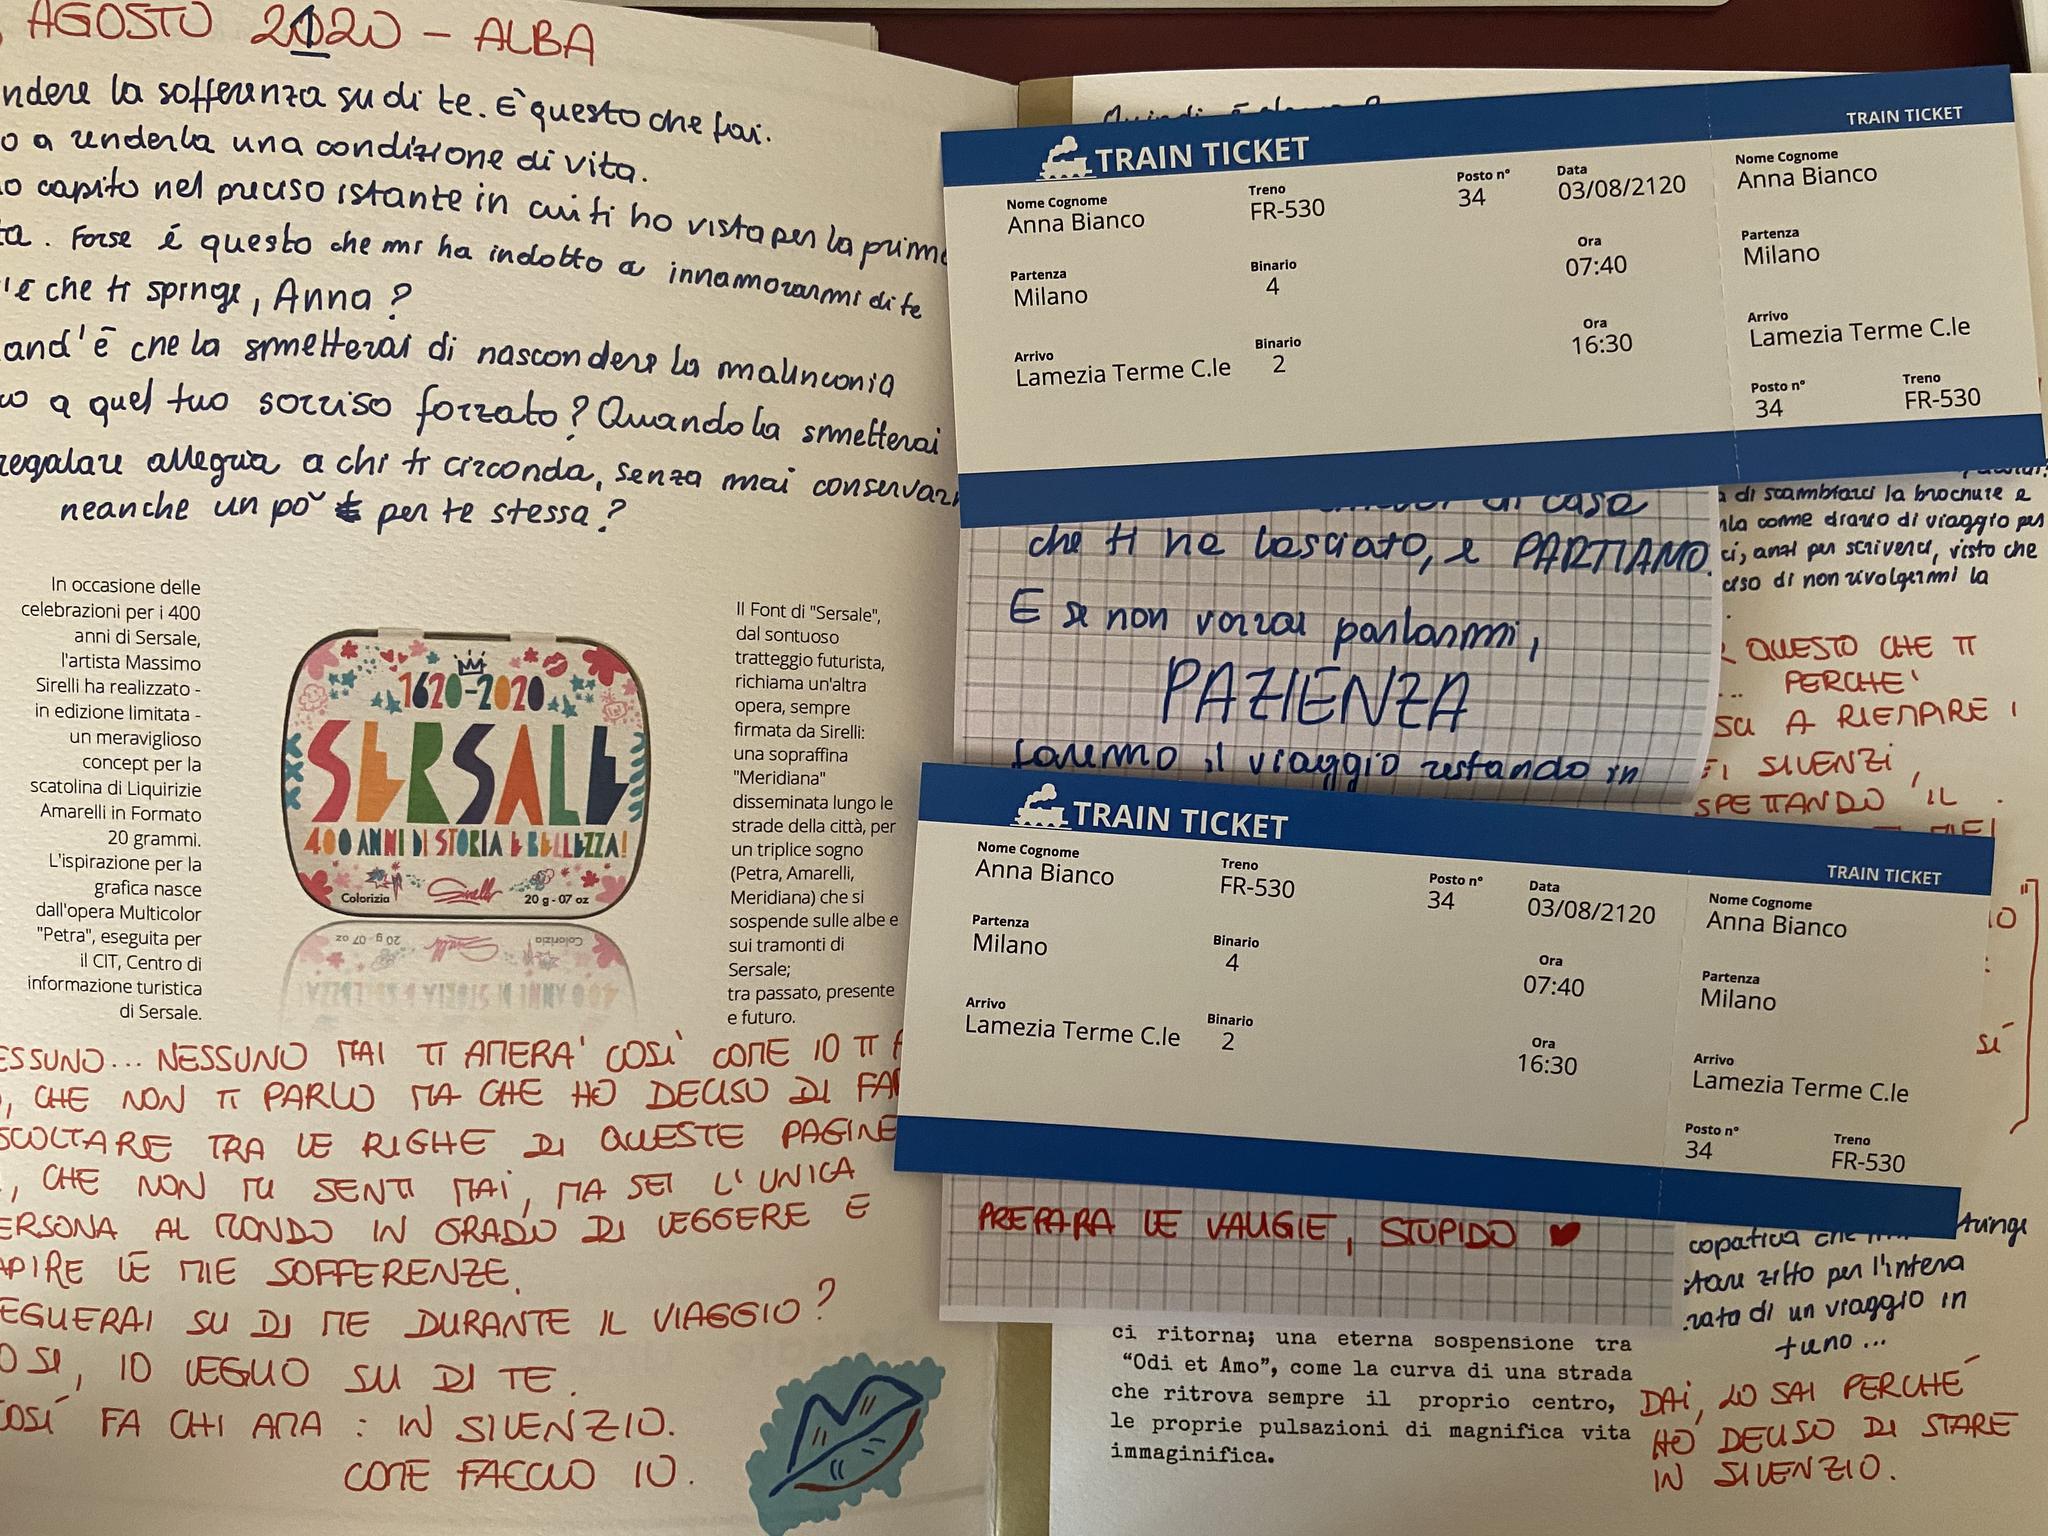 AGOSTO 2120 - ALBA
ndere la sofferenza su di te. E' questo che fai.
o a renderla una condizione di vita.
o capito nel preciso istante in cui ti ho vista per la prima
ta. Forse é questo che mi ha indotto a innamorarmi di te
'é che ti spinge, Anna?
and'é che la smetterai di nascondere la malinconia
a quel tuo sorriso forzato? Quando la smetterai
regalare allegria a chi ti circonda, senza mai conservar
neanche un po' per te stessa?
In occasione delle
celebrazioni per i 400
anni di Sersale,
l'artista Massimo
Sirelli ha realizzato -
in edizione limitata -
un meraviglioso
concept per la
scatolina di Liquirizie
Amarelli in Formato
20 grammi.
L'ispirazione per la
grafica nasce
dall'opera Multicolor
"Petra", eseguita per
il CIT, Centro di
informazione turistica
di Sersale.
1620-2020
SERSALE
400 ANNI DI STORIA E BELLEZZA!
Sirelli
Colorizia
20 g - 07 oz
Il Font di "Sersale",
dal sontuoso
tratteggio futurista,
richiama un'altra
opera, sempre
firmata da Sirelli:
una sopraffina
"Meridiana"
disseminata lungo le
strade della città, per
un triplice sogno
(Petra, Amarelli,
Meridiana) che si
sospende sulle albe e
sui tramonti di
Sersale;
tra passato, presente
e futuro.
ESSUNO... NESSUNO MAI TI AMERA' COSÌ COME IO TI A
, CHE NON TI PARLO MA CHE HO DECISO DI FAR
SCOLTARE TRA LE RIGHE DI QUESTE PAGINE
, CHE NON MI SENTI MAI, MA SEI L'UNICA
ERSONA AL MONDO IN GRADO DI LEGGERE E
APIRE LE MIE SOFFERENZE.
EGLIERAI SU DI ME DURANTE IL VIAGGIO?
O SI, IO VEGLIO SU DI TE.
COSÍ FA CHI AMA: IN SILENZIO.
COME FACCIO IO.
TRAIN TICKET
Nome Cognome
Anna Bianco
Treno
FR-530
Posto n°
34
Data
03/08/2120
Partenza
Milano
Binario
4
Ora
07:40
Arrivo
Lamezia Terme C.le
Binario
2
Ora
16:30
TRAIN TICKET
Nome Cognome
Anna Bianco
Partenza
Milano
Arrivo
Lamezia Terme C.le
Posto n°
34
Treno
FR-530
di casa
che ti ha lasciato, e PARTIAMO.
E se non vorrai parlarmi,
PAZIENZA
faremo il viaggio restando in
a di scambiarci la brochure e
rla come diario di viaggio per
ci, anzi per scriverci, visto che
di non rivolgermi la
QUESTO CHE TI
... PERCHE'
SCI A RIEMPIRE I
EI SILENZI,
SPETTANDO IL
TRAIN TICKET
Nome Cognome
Anna Bianco
Treno
FR-530
Posto n°
34
Data
03/08/2120
Partenza
Milano
Binario
4
Ora
07:40
Arrivo
Lamezia Terme C.le
Binario
2
Ora
16:30
TRAIN TICKET
Nome Cognome
Anna Bianco
Partenza
Milano
Arrivo
Lamezia Terme C.le
Posto n°
34
Treno
FR-530
PREPARA LE VALIGIE, STUPIDO ♥
stare zitto per l'intera
rata di un viaggio in
treno...
ci ritorna; una eterna sospensione tra
“Odi et Amo”, come la curva di una strada
che ritrova sempre il proprio centro,
le proprie pulsazioni di magnifica vita
immaginifica.
DAI, LO SAI PERCHÉ
HO DECISO DI STARE
IN SILENZIO.